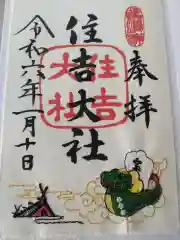 奉拝
住吉大社
住吉
大社
令和六年一月十日